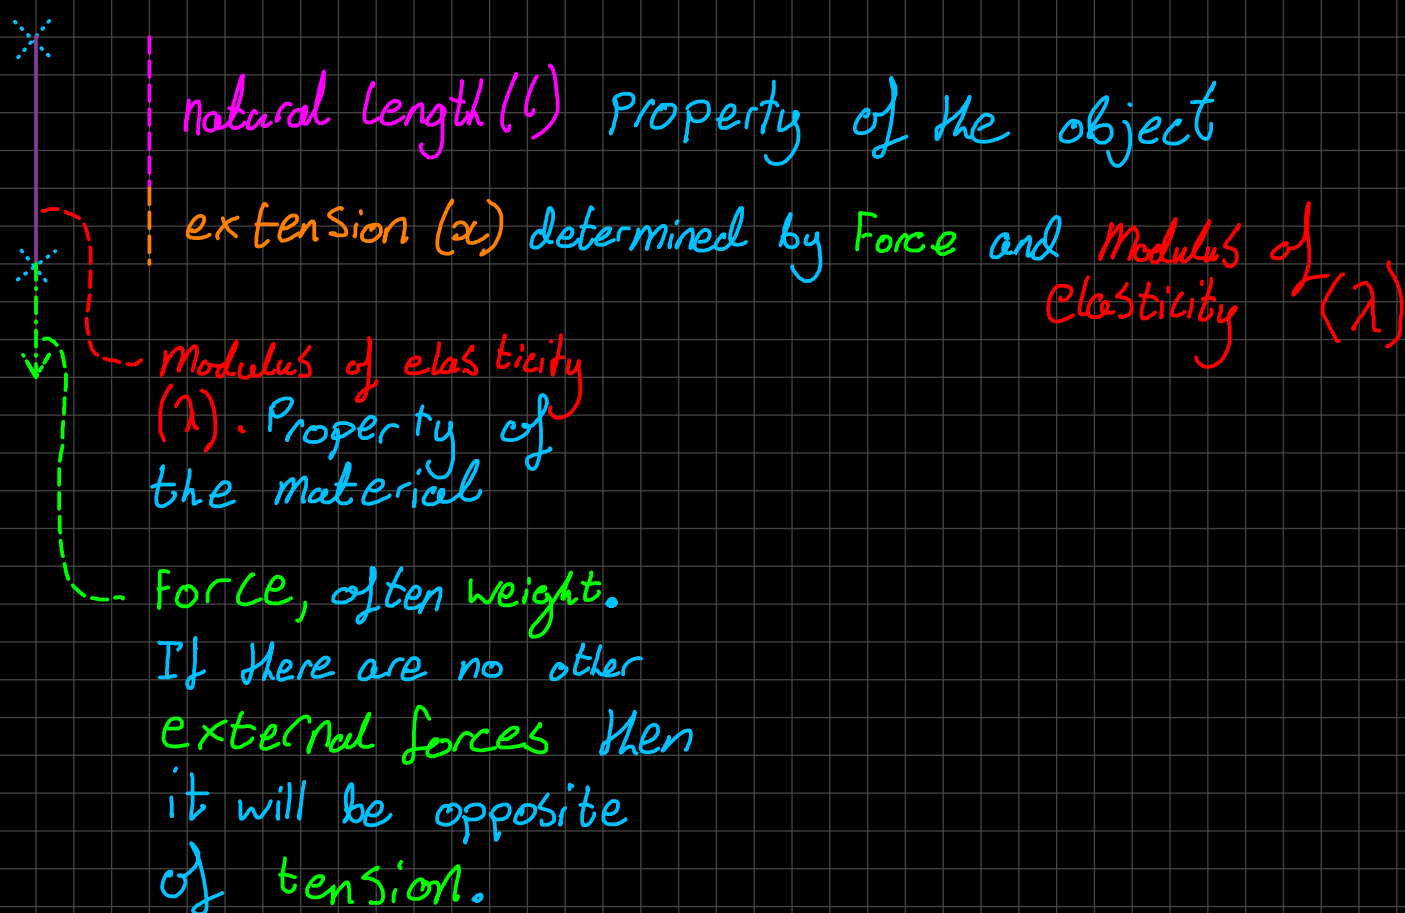 natural length (l) Property of the object
extension (x) determined by Force and Modulus of
elasticity (λ)
Modulus of elasticity
(λ). Property of
the material
Force, often weight.
If there are no other
external forces then
it will be opposite
of tension.